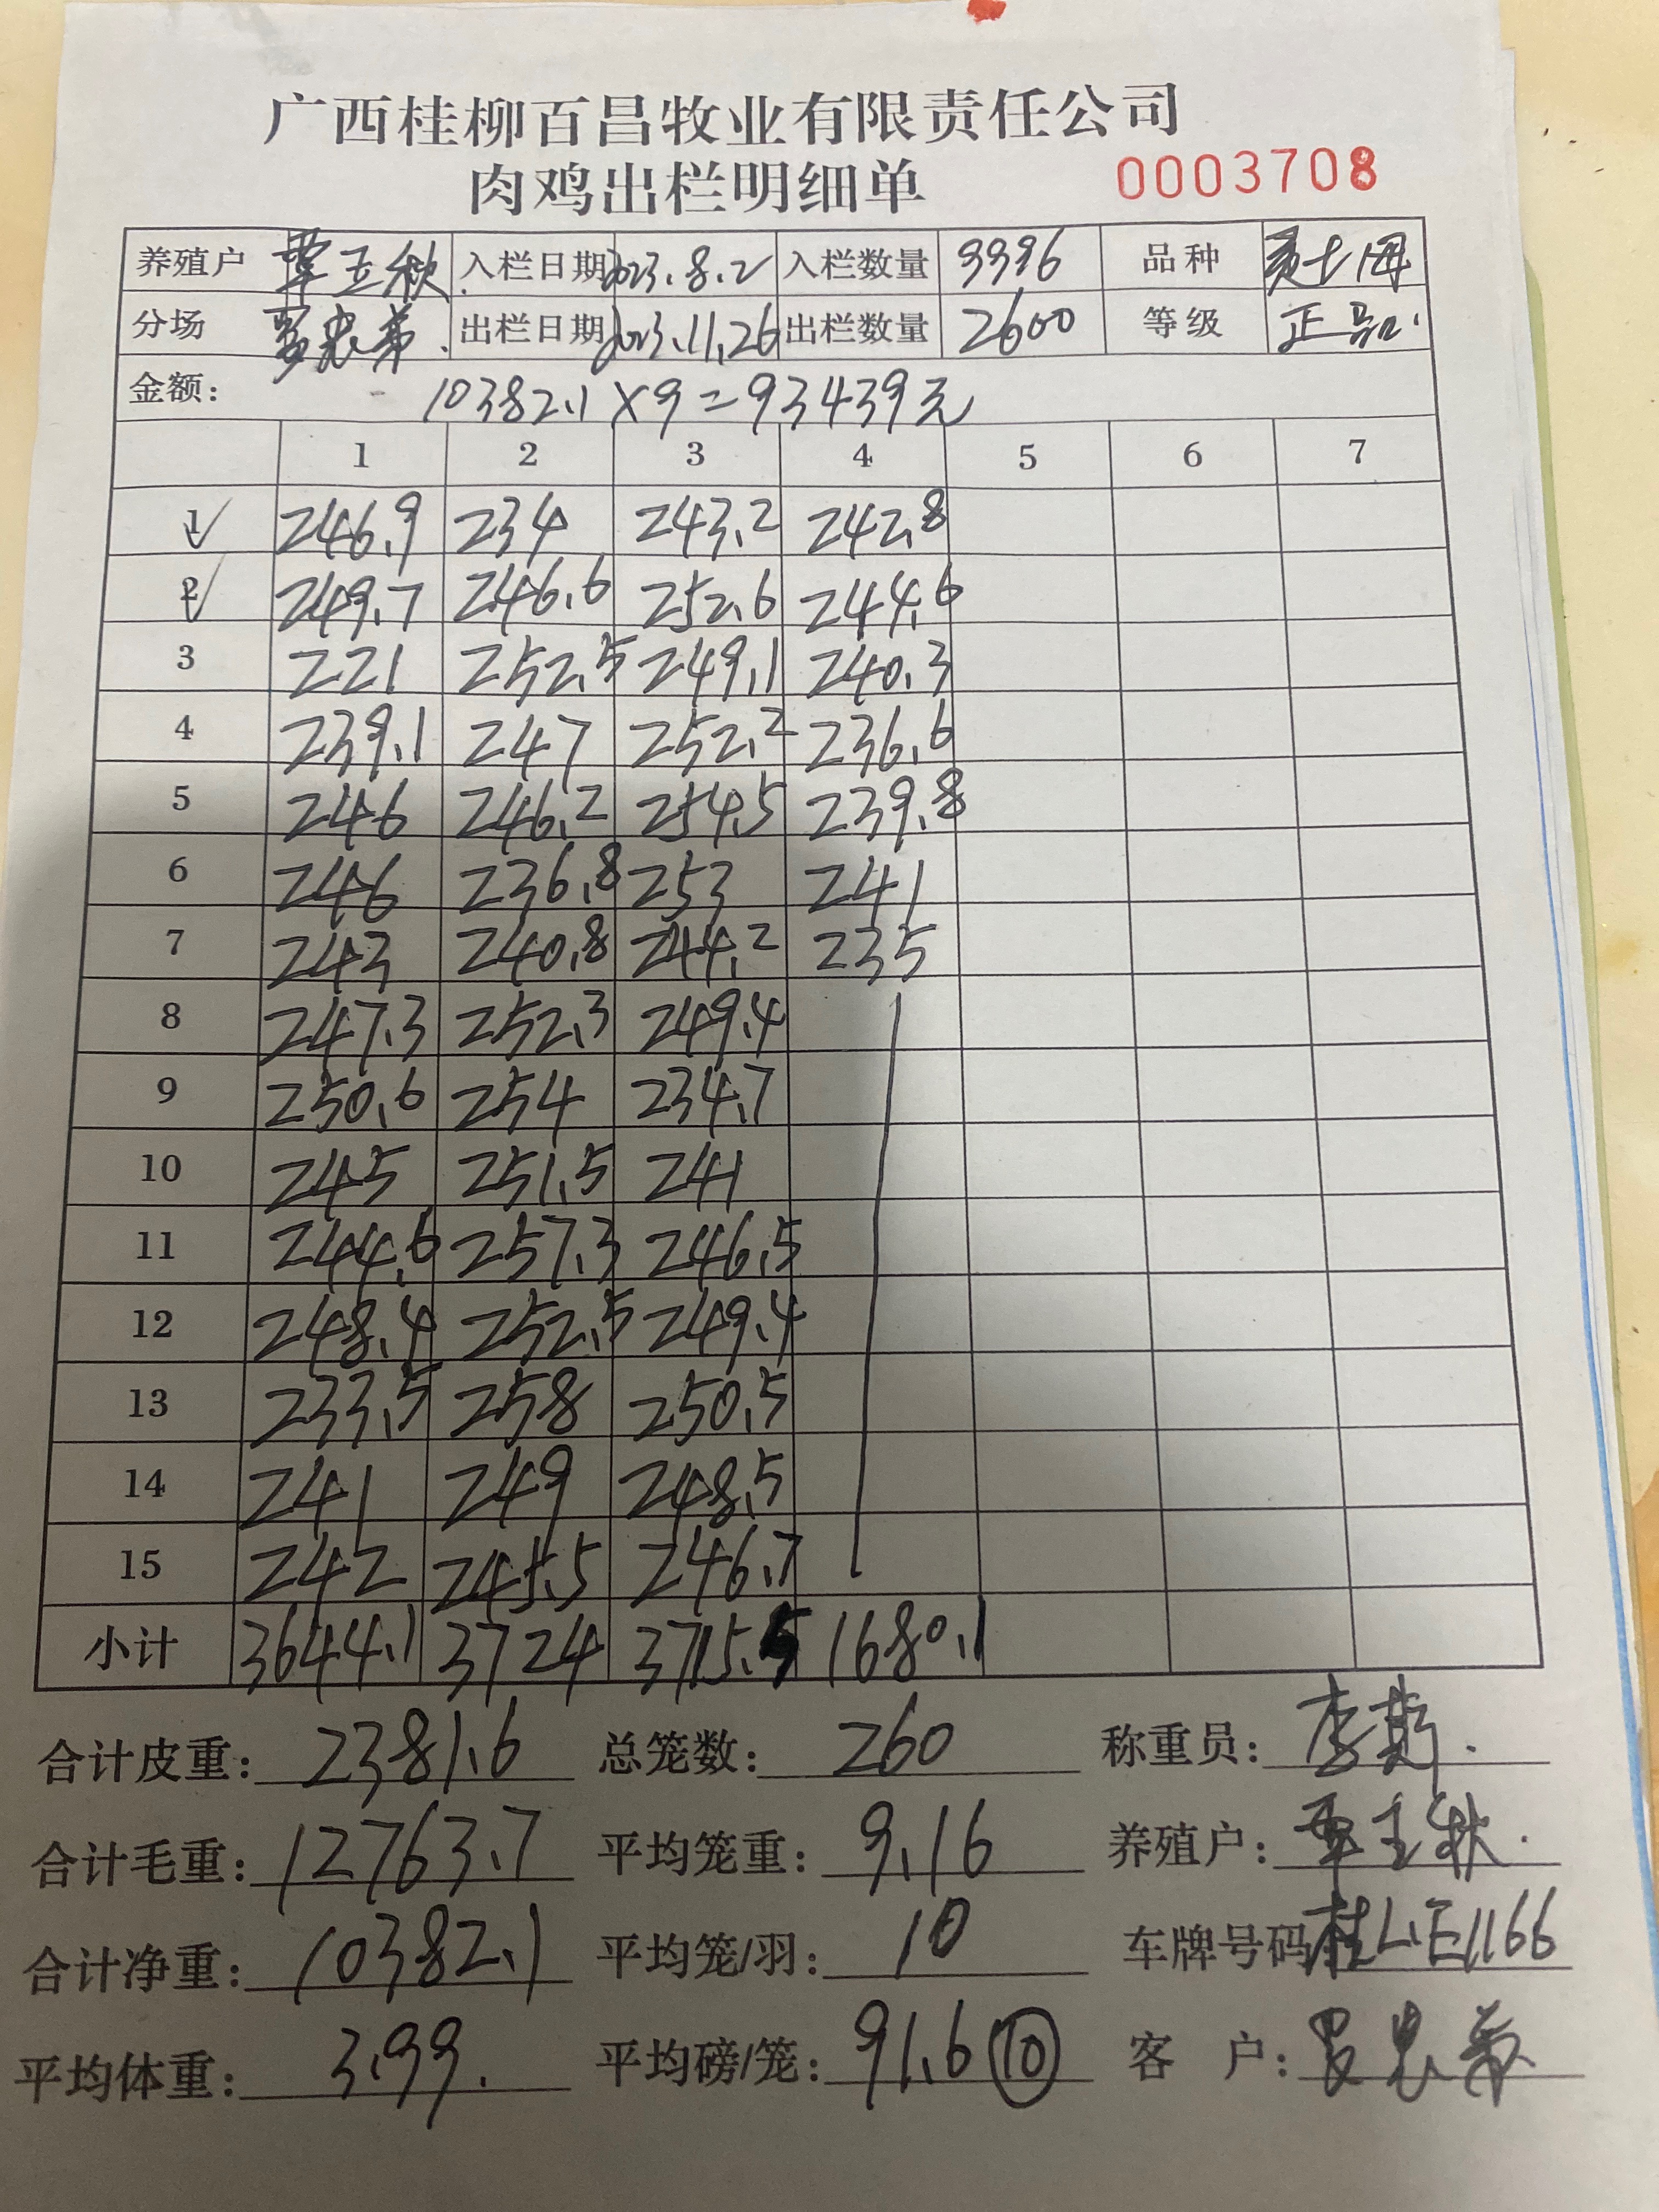 广西桂柳百昌牧业有限责任公司
肉鸡出栏明细单 0003708
养殖户 覃玉秋 入栏日期 2023.8.2 入栏数量 9996 品种
分场 出栏日期 2023.11.26 出栏数量 2600 等级 正品
金额: 10382.1×9=93439元
1 2 3 4 5 6 7
1 246.9 234 243.2 242.8
2 249.7 246.6 252.6 244.6
3 221 252.5 249.1 240.3
4 239.1 247 252.2 236.6
5 246 246.2 254.5 239.8
6 246 236.8 253 241
7 243 240.8 244.2 235
8 247.3 252.3 249.4
9 250.6 254 234.7
10 245 251.5 241
11 244.6 257.3 246.5
12 248.4 252.5 249.4
13 233.5 258 250.5
14 241 249 248.5
15 242 245.5 246.7
小计 3644.1 3724 3715.5 1680.1
合计皮重: 2381.6 总笼数: 260 称重员:
合计毛重: 12763.7 平均笼重: 9.16 养殖户: 覃玉秋
合计净重: 10382.1 平均笼/羽: 10 车牌号码 桂L·E1166
平均体重: 3.99. 平均磅/笼: 91.6 10 客 户: